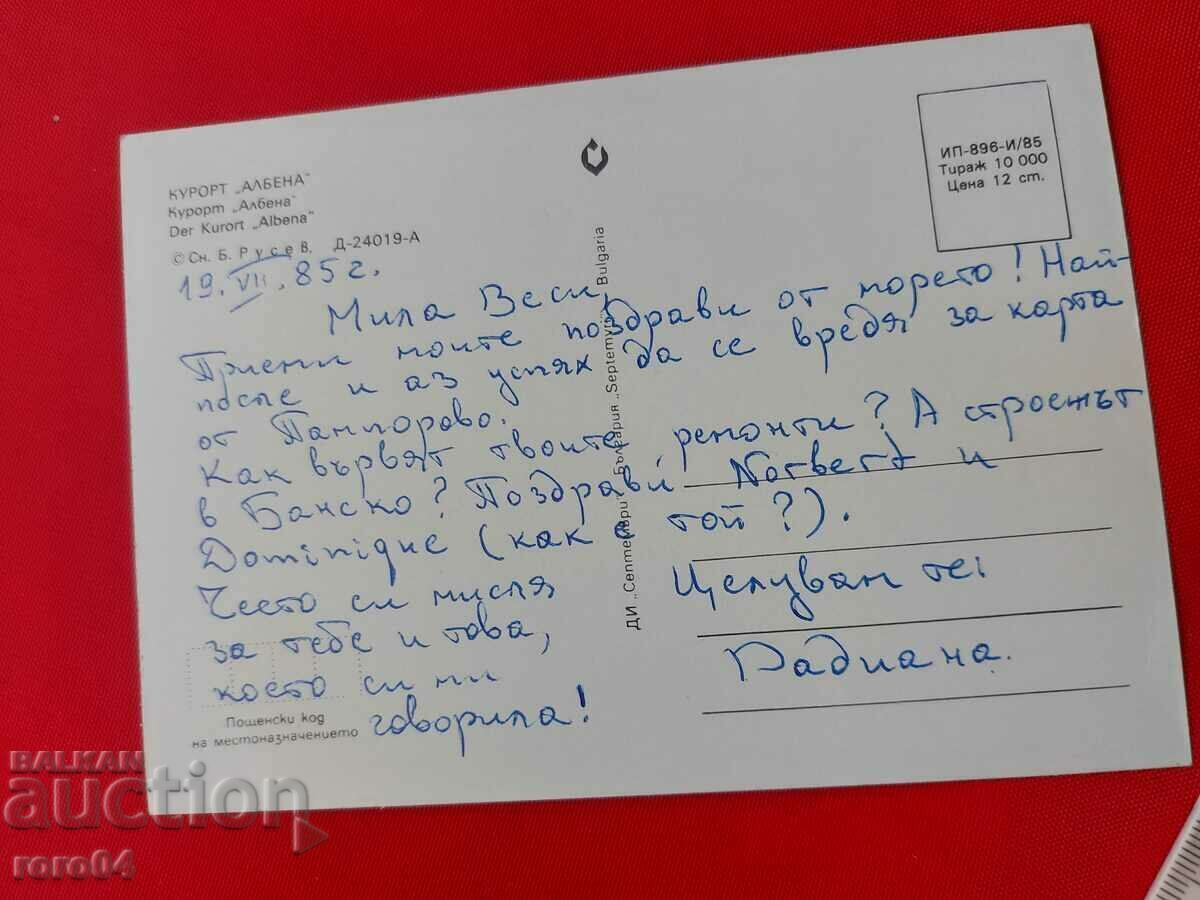 КУРОРТ „АЛБЕНА"
Курорт „Албена"
Der Kurort „Albena"
© Сн. Б. Русев. Д-24019-А
ИП-896-И/85
Тираж 10 000
Цена 12 ст.
ДИ „Септември" България „Septemvri" Bulgaria
19. VII. 85 г.
Мила Веси,
Приеми моите поздрави от морето! Най-
после и аз успях да се вредя за карта
от Пампорово.
Как вървят твоите ремонти? А строежът
в Банско? Поздрави Norbert и
Dominique (как е той?).
Често си мисля
за тебе и това,
което си ми
говорила!
Целувам те:
Радиана.
Пощенски код
на местоназначението
BALKAN
auction
roro04